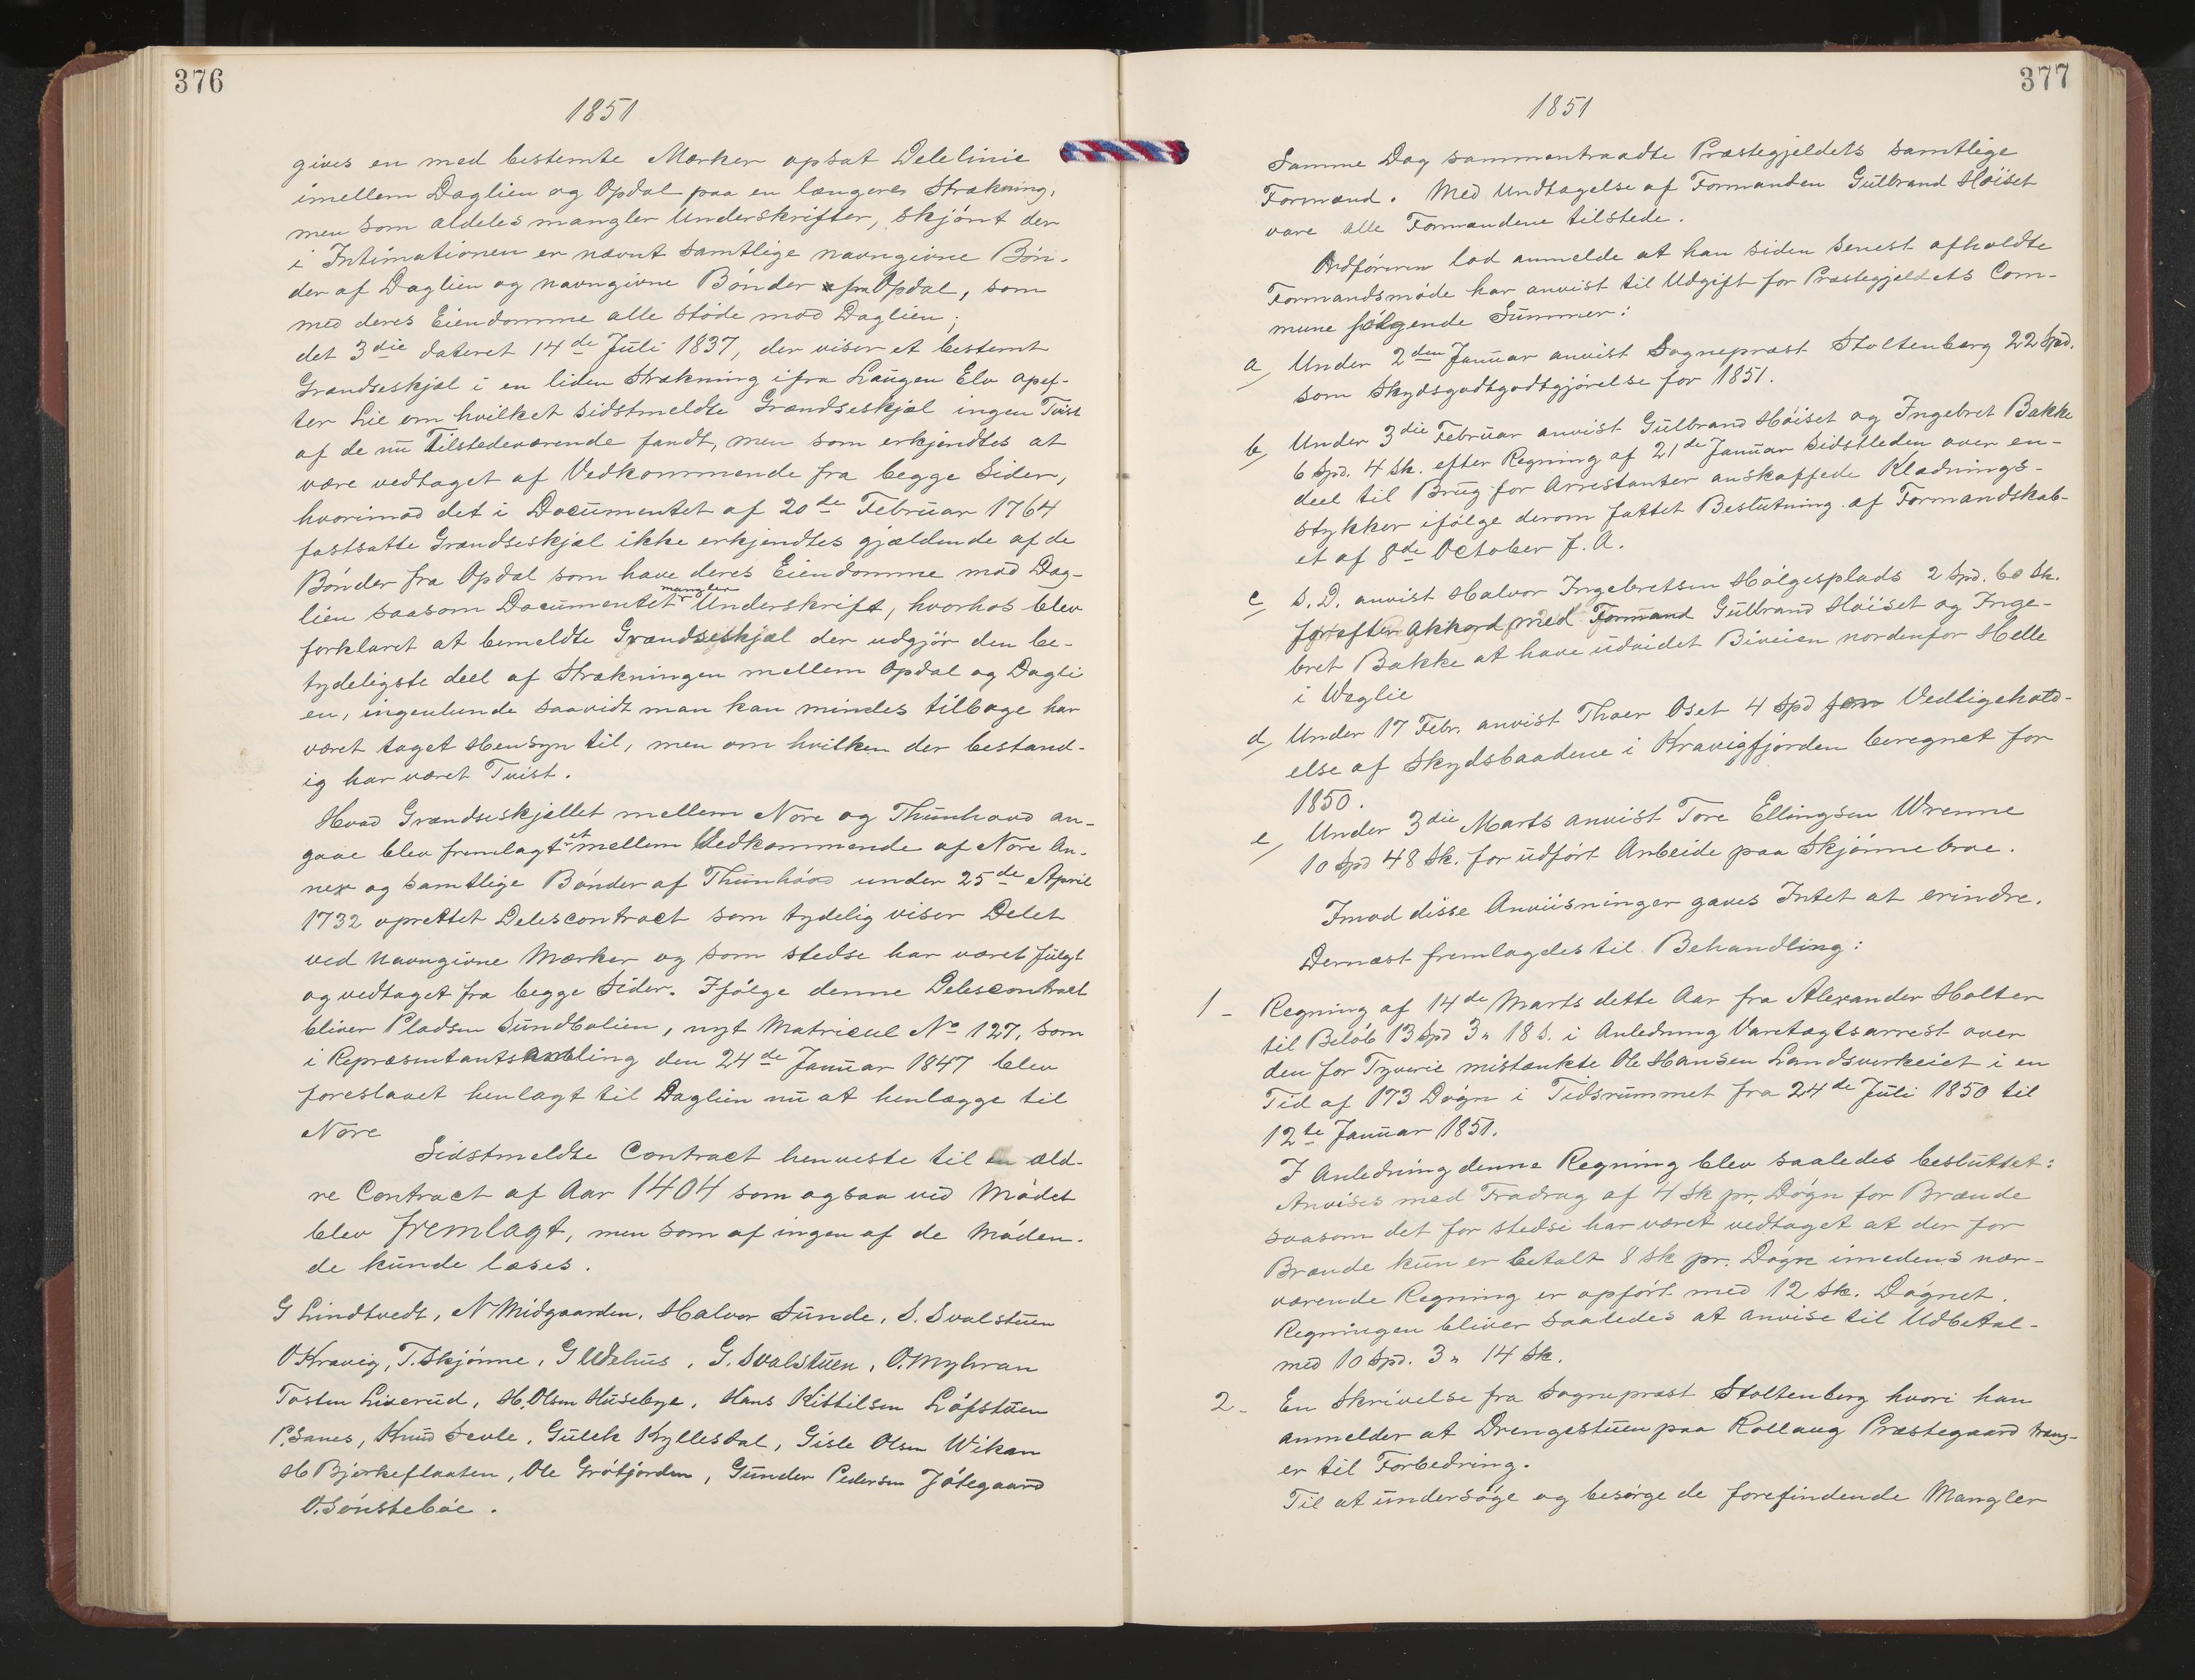 376
1851
gives en med bestemte Mærker opsat Delelinie
imellem Daglien og Opdal paa en længere Strækning,
men som aldeles mangler Underskrifter, skjönt der
i Intimationen er nævnt samtlige navngivne Bön-
der af Daglien og navngivne Bönder fra Opdal, som
med deres Eiendomme alle stöde mod Daglien;
det 3die dateret 14de Juli 1837, der viser et bestemt
Grændseskjæl i en liden Strækning ifra Laugen Elv opef-
ter Lie om hvilket sidstmeldte Grændseskjæl ingen Tvist
af de nu Tilstedeværende fandt, men som erkjendtes at
være vedtaget af Vedkommende fra begge Sider,
hvorimod det i Documentet af 20de Februar 1764
fastsatte Grændseskjæl ikke erkjendtes gjældende af de
Bönder fra Opdal som have deres Eiendomme mod Dag-
lien saasom Documentet mangler Underskrift, hvorhos blev
forklaret at bemeldte Grændseskjæl der udgjör den be-
tydeligste deel af Strækningen mellem Opdal og Dagli
en, ingenlunde saavidt man kan mindes tilbage har
været taget Hensyn til, men om hvilken der bestand-
ig har været Tvist.
Hvad Grændseskjellet mellem Nore og Thunhovd an-
gaae blev fremlagt et mellem Vedkommende af Nore An-
nex og samtlige Bönder af Thunhövd under 25de April
1732 oprettet Delescontract som tydelig viser Delet
ved navngivne Mærker og som stedse har været fulgt
og vedtaget fra begge Sider. Ifölge denne Delescontract
bliver Pladsen Sundbölien, nyt Matricul No 127, som
i Repræsentantsamling den 24de Januar 1847 blev
foreslaaet henlagt til Daglien nu at henlægge til
Nore
Sidstmeldte Contract henveste til en æld-
re Contract af Aar 1404 som ogsaa ved Mödet
blev fremlagt, men som af ingen af de Möden-
de kunde læses.
G Lindtvedt, N Midgaarden, Halvor Sunde, S. Svalstuen
O Kravig, T. Skjönne, G Uldehus, G. Svalstuen, O. Myhran
Tosten Liverud, H. Olsen Husebye, Hans Kittilsen Löfstuen
P. Sanes, Knud Sevle, Gulek Kyllesdal, Gisle Olsen Wikan
H Bjerkeflaaten, Ole Grötjorden, Gunder Pedersen Jötegaard
O. Sönsteböe.
377
1851
Samme Dag sammentraadte Præstegjeldets samtlige
Formænd. Med Undtagelse af Formanden Gulbrand Höiset
vare alle Formændene tilstede.
Ordföreren lod anmelde at han siden senest afholdte
Formandsmöde har anvist til Udgift for Præstegjeldets Com-
mune fölgende Summer:
a, Under 2den Januar anvist Sognepræst Stoltenberg 22 Spd.
som Skydsgodtgodtgjörelse for 1851.
b, Under 3die Februar anvist Gulbrand Höiset og Ingebret Bakke
6 Spd. 4 Sk. efter Regning af 21de Januar sidstleden over en-
deel til Brug for Arrestanter anskaffede Klædnings-
stykker ifölge derom fattet Beslutning af Formandskab-
et af 8de October f. A.
c, S. D. anvist Halvor Ingebretsen Hölgesplads 2 Spd. 60 Sk.
for efter Akkord med Formænd Gulbrand Höiset og Inge-
bret Bakke at have udvidet Biveien nordenfor Helle
i Weglie
d, Under 17 Febr. anvist Thoer Oset 4 Spd for Vedligehold-
else af Skydsbaadene i Kravigfjorden beregnet for
1850.
e, Under 3die Marts anvist Tore Ellingsen Wrenne
10 Spd 48 Sk. for udfört Arbeide paa Skjönnebroe.
Imod disse Anviisninger gaves Intet at erindre.
Dernæst fremlagdes til Behandling:
1 - Regning af 14de Marts dette Aar fra Alexander Holter
til Belöb 13 Spd 3 " 18 S. i Anledning Varetægtsarrest over
den for Tyverie mistænkte Ole Hansen Landsverkeiet i en
Tid af 173 Dögn i Tidsrummet fra 24de Juli 1850 til
12te Januar 1851.
I Anledning denne Regning blev saaledes besluttet:
Anvises med Fradrag af 4 Sk pr. Dögn for Brænde
saasom det for stedse har været vedtaget at der for
Brænde kun er betalt 8 Sk pr. Dögn imedens nær-
værende Regning er opfört med 12 Sk. Dögnet.
Regningen bliver saaledes at anvise til Udbetal-
med 10 Spd. 3 " 14 Sk.
2 - En Skrivelse fra Sognepræst Stoltenberg hvori han
anmelder at Drengestuen paa Rollaug Præstegaard træng-
er til Forbedring.
Til at undersöge og besörge de forefindende Mangler